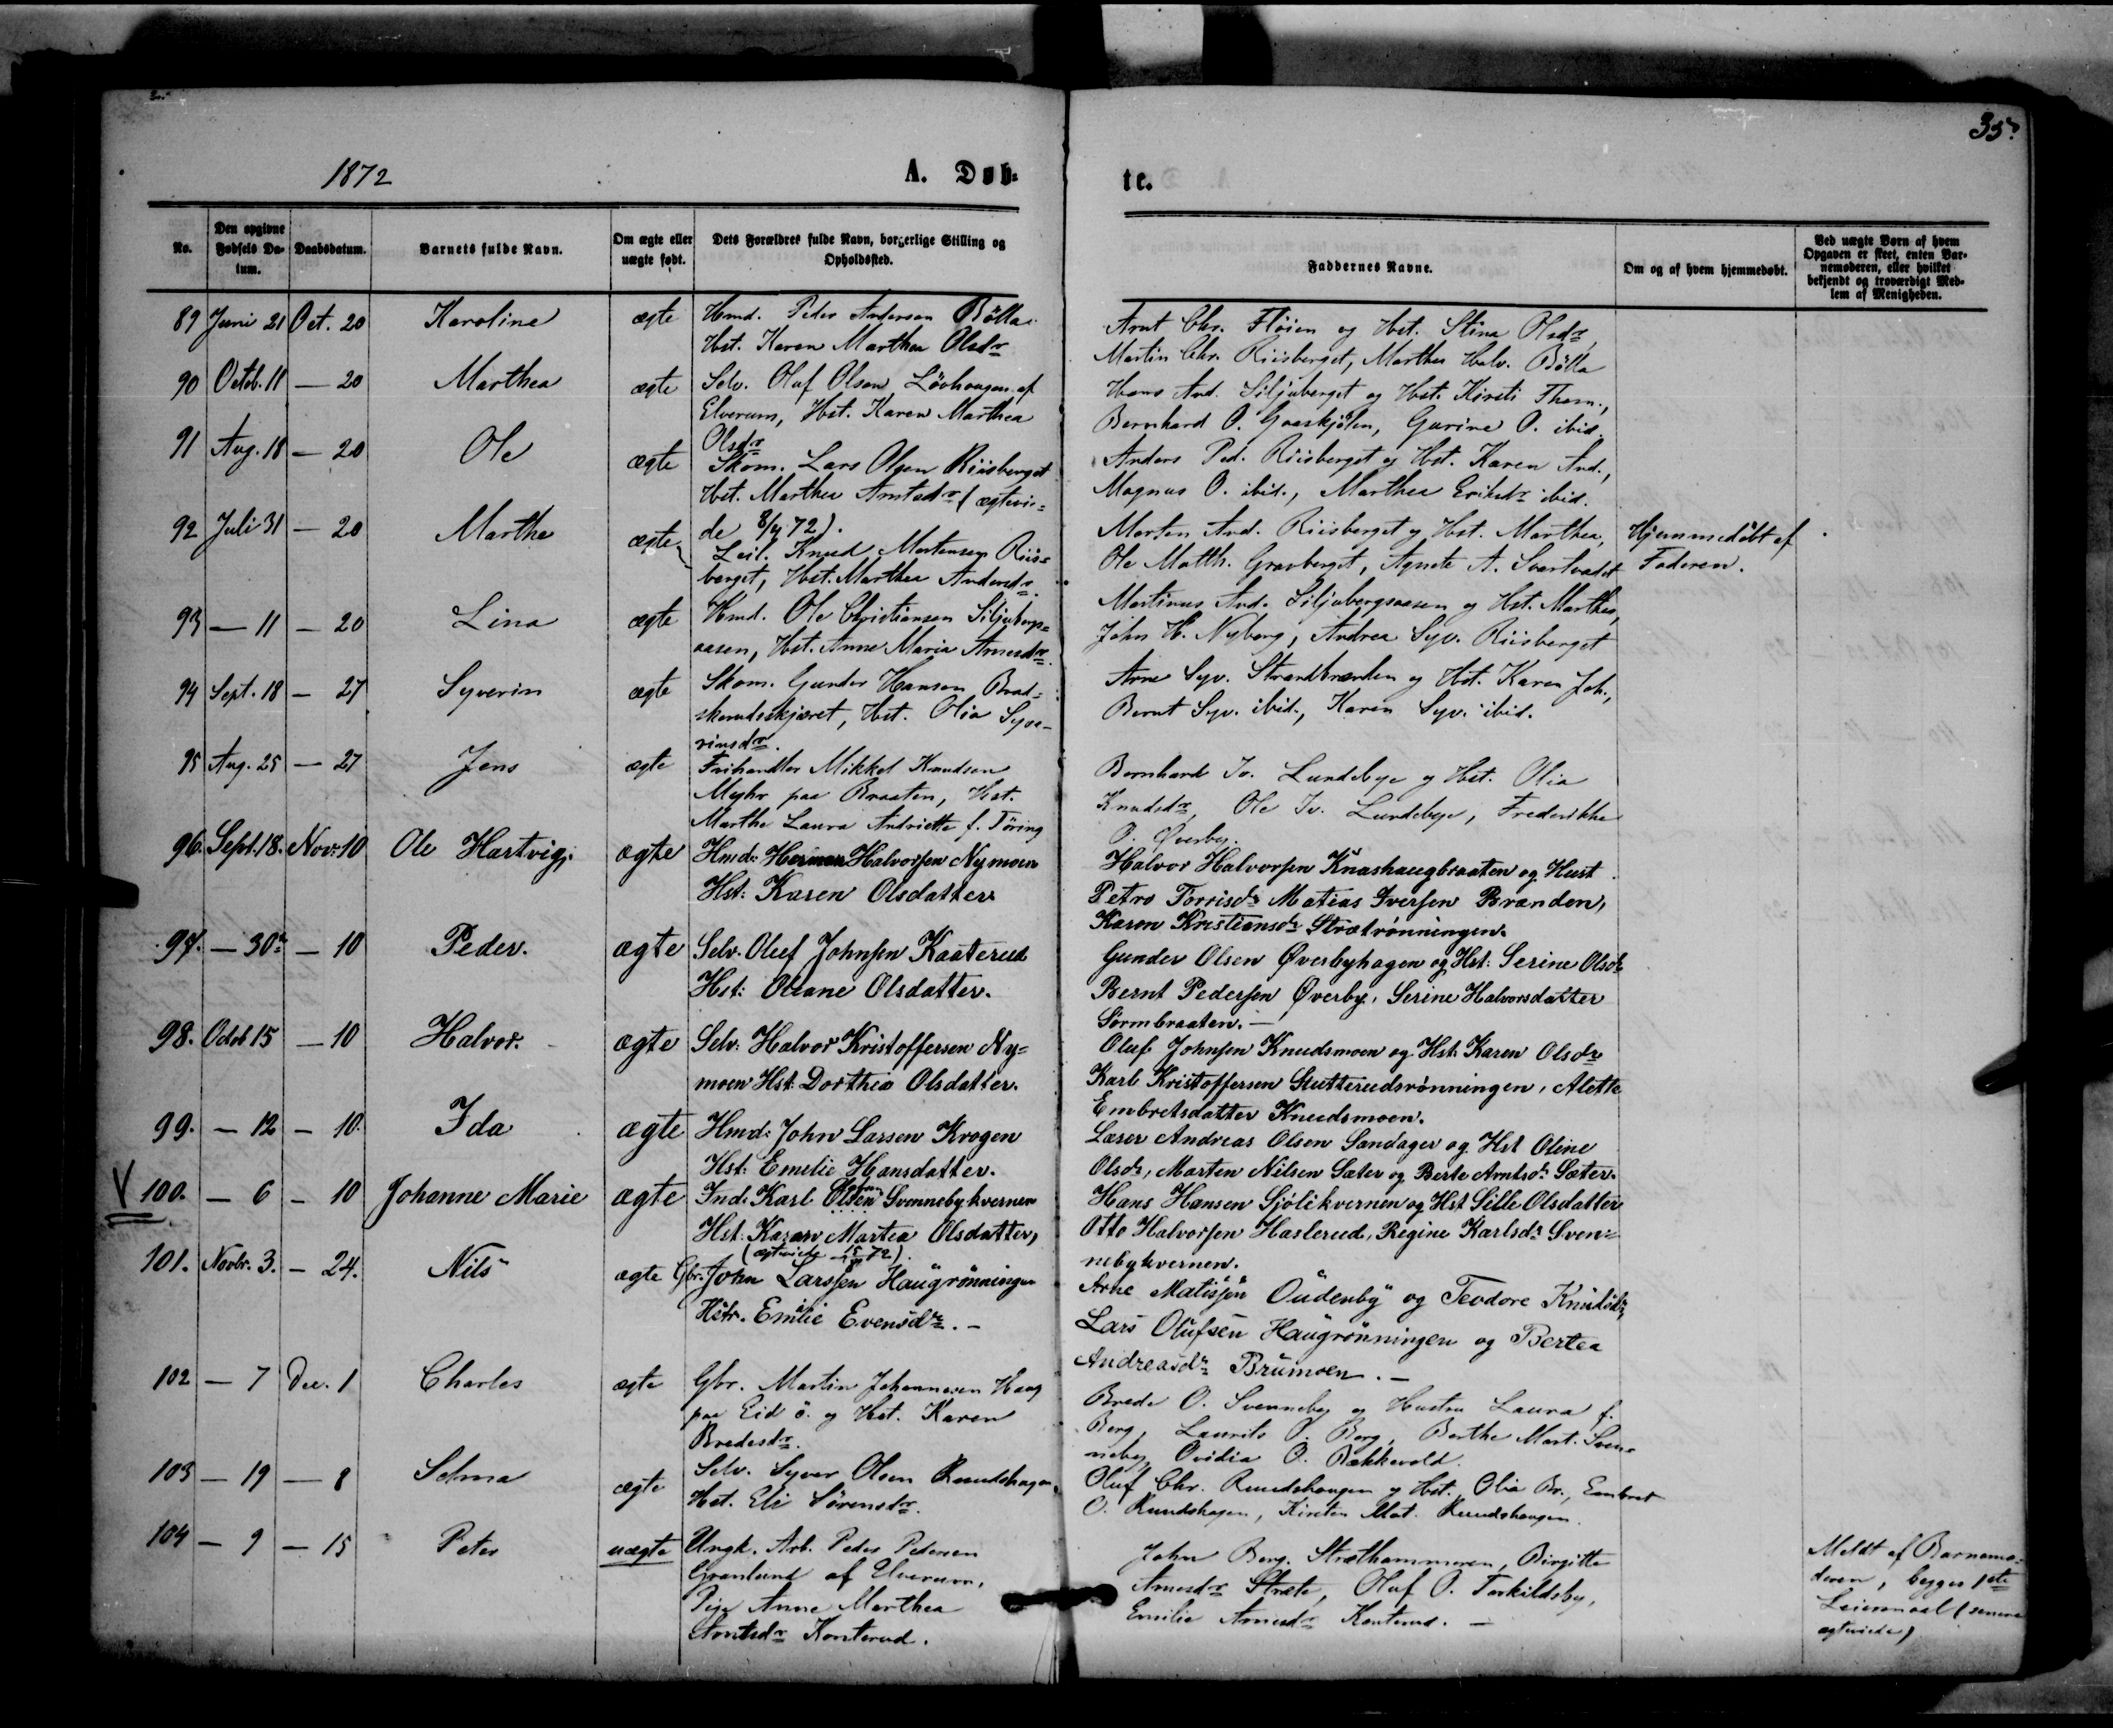 35.
1872
A. Døb-
te.
No.
Den opgivne Fødsels Da-tum.
Daabsdatum.
Barnets fulde Navn.
Om ægte eller uægte født.
Dets Forældres fulde Navn, borgerlige Stilling og Opholdssted.
Faddernes Navne.
Om og af hvem hjemmedøbt.
Ved uægte Born af hvem Opgaven er skeet, enten Bar-nemoderen, eller hvilket bekjendt og troværdigt Med-lem af Menigheden.
89 Juni 21 Oct. 20 Karoline ægte Hmd. Peder Andersen Bölla
Hst. Karen Marthea Olsdr
Arnt Chr. Flöien og Hst. Stina Olsdr,
Martin Chr. Riisberget, Marthe Halv. Bölla
90 Octob. 11 — 20 Marthea ægte Selv. Oluf Olsen Lövhaugen af
Elverum, Hst. Karen Marthea
Olsdr
Hans And. Siljuberget og Hst. Kirsti Thom.,
Bernhard O. Graaskjölen, Gurine O. ibid.
91 Aug. 18 — 20 Ole ægte Skom. Lars Olsen Riisberget
Hst. Marthea Arntsdr (ægtevi=
de 8/4 72).
Anders Ped. Riisberget og Hst. Karen And.,
Magnus O. ibid., Marthea Eriksdr ibid.
92 Juli 31 — 20 Marthe ægte Leil. Knud Mortensen Riis=
berget, Hst. Marthea Andersdr.
Morten And. Riisberget og Hst. Marthea,
Ole Matth. Gravberget, Agnete A. Svartvadet
Hjemmedöbt af
Faderen.
93 — 11 — 20 Lina ægte Hmd. Ole Christiansen Siljuberg=
aasen, Hst. Anne Maria Arnesdr.
Martinus And. Siljubergsaasen og Hst. Marthea,
John H. Nyberg, Andrea Syv. Riisberget
94 Sept. 18 — 27 Syverin ægte Skom. Gunder Hansen Brad=
skerudsskjæret, Hst. Olia Syve-
rinsdr.
Arne Syv. Strandbranden og Hst. Karen Joh.,
Bernt Syv. ibid., Karen Syv. ibid.
95 Aug. 25 — 27 Jens ægte Frihandler Mikkel Knudsen
Myhr paa Braaten, Hst.
Marthe Laura Andriette f. Töring
Bernhard Iv. Lundebye og Hst. Olia
Knudsdr, Ole Iv. Lundebye, Frederikke
O. Øverby.
96. Sept. 18. Nov: 10 Ole Hartvig, ægte Hmd: Herman Halvorsen Nymoen
Hst: Karen Olsdatter
Halvor Halvorsen Knashaugbraaten og Hust
Petro Torrisdr Matias Iversen Branden,
Karen Kristiansdr Strætrönningen.
97. — 30. — 10 Peder. ægte Selv. Oluf Johnsen Kaaterud
Hst: Oleane Olsdatter.
Gunder Olsen Øverbyhagen og Hst: Serine Olsdr
Bernt Pedersen Øverby, Serine Halvorsdatter
Sormbraaten. —
98. Octob 15 — 10 Halvor. ægte Selv: Halvor Kristoffersen Ny=
moen Hst: Dorthea Olsdatter.
Oluf Johnsen Knudsmoen og Hst: Karen Olsdr
Karl Kristoffersen Skutterudsrönningen, Alette
Embretsdatter Knudsmoen.
99. — 12 — 10. Ida ægte Hmd: John Larsen Krogen
Hst: Emelie Hansdatter.
Læser Andreas Olsen Sandager og Hst Oline
Olsdr, Marten Nilsen Sæter og Berte Arntsdr Sæter.
V 100. — 6 — 10 Johanne Marie ægte Ind: Karl Olsen Svennebykvernen
Hst: Karen Martea Olsdatter,
(ægteviede 72).
Hans Hansen Sjölikvernen og Hst Sille Olsdatter
Otto Halvorsen Haslerud, Regine Karlsdr Sven=
nebykvernen.
101. Novbr. 3. — 24. Nils ægte Gbr. John Larssen Haugrönningen
Hstr. Emilie Evensdr. —
Arne Matissen Oudenby og Teodore Knudsdr,
Lars Olufsen Haugrönningen og Bertea
Andreasdr Brumoen. —
102 — 7 Dec. 1 Charles ægte Gbr. Martin Johannesen Haug
paa Eid ö. og Hst. Karen
Bredesdr.
Brede O. Svenneby og Hustru Laura f.
Berg, Laurits O. Berg, Berthe Mart. Sven=
neby, Ovidia O. Bækkevold.
103 — 19 — 8 Selma ægte Selv. Syver Olsen Rundshagen,
Hst. Eli Sörensdr.
Oluf Chr. Rundshaugen og Hst. Olia Br., Embret
O. Rundshagen, Kirsten Mat. Rundshaugen.
104 — 9 — 15 Peter uægte Ungk. Arb. Peder Pedersen
Grønlund af Elverum,
Pige Anne Marthea
Arntsdr Konterud.
John Berg. Stræthammeren, Birgitte
Arnesdr Stræte, Oluf O. Torkildsby,
Emilie Arnesdr Konterud. —
Meldt af Barnemo=
deren, begges 1ste
Leiermaal (senere
ægteviede)